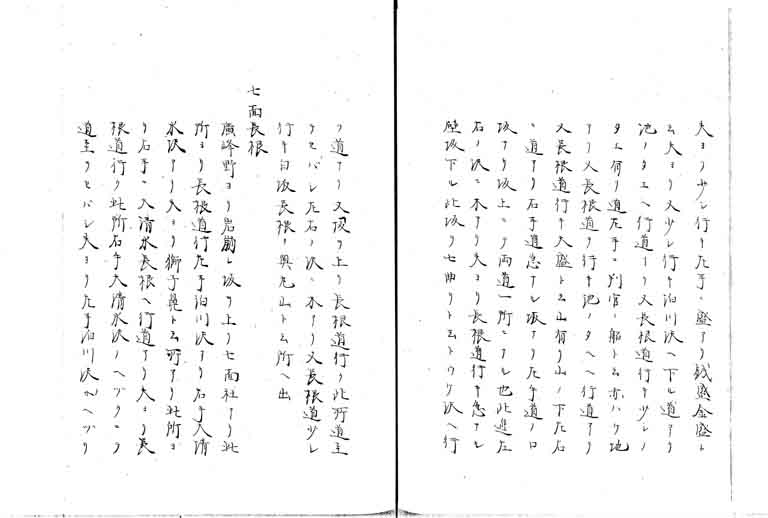 夫ヨリ少シ行キ左手ニ盛アリ銭盛金盛ト
云夫ヨリ又少シ行キ泊川沢ヘ下ル道アリ
池ノタエヘ行道アリ又長根道行キ少シノ
タエ有リ道左手ニ判官ノ船ト云赤ハケ地
アリ又長根道ヲ行キ池ノタヘヘ行道アリ
又長根道行キ大盛ト云山有リ山ノ下左右
ニ道アリ右手道急ナシ坂アリ左手道ノ口
坂アリ坂上ニテ両道一所ニナル也此辺左
右ノ沢ニ木アリ夫ヨリ長根道行キ急ナル
坂下ル此坂ヲ七曲リト云トノケ沢ヘ行
ク道アリ又坂ヲ上リ長根道行ク此所道主
クセバシ左右ノ沢ニ木アリ又長根道少シ
行キ白坂長根ノ奥九山ト云所ヘ出
七面長根
廣峰野ヨリ岩崩シ坂ヲ上リ七面社アリ此
所ヨリ長根道行左手泊川沢アリ右手大清
水沢アリ夫ヨリ獅子鼻ト云所アリ此所ヨ
リ右手ニ入清水長根ヘ行道アリ夫ヨリ長
根道行ク此所右手大清水沢ノヘブクアリ
道主クセバシ夫ヨリ左手泊川沢ノヘブリ